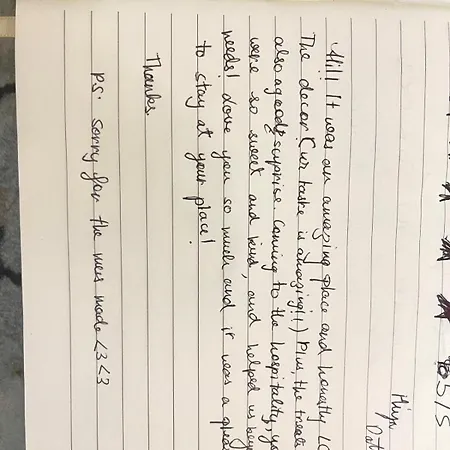 5/5
Hi!! It was an amazing place and honestly
The decor (ur taste is amazing!!) Plus, the
also a good surprise. Coming to the hospitality,
were so sweet and kind, and helped us
needs! Love you so much and it was a
to stay at your place!
Thanks
PS. Sorry for the mess made <3<3